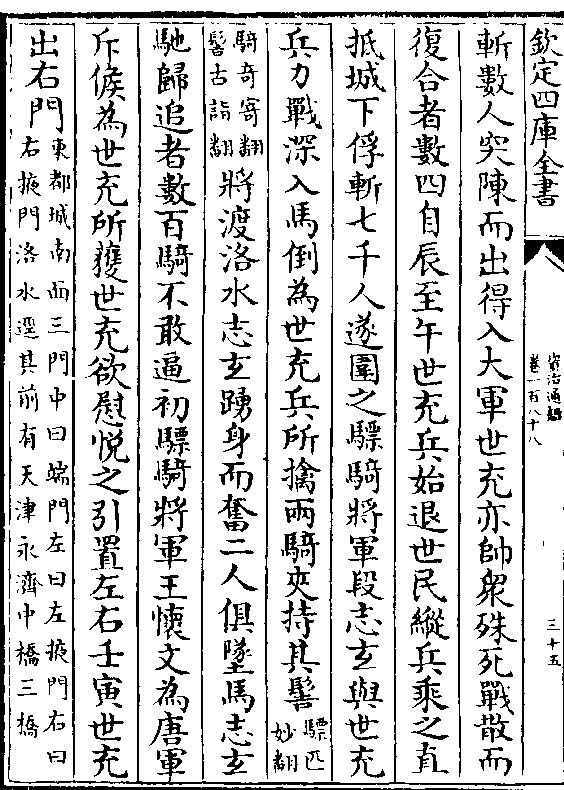 欽定四庫全書
資治通鑑
卷一百八十八
三十五
斬數人突陳而出得入大軍世充亦帥衆殊死戰散而
復合者數四自辰至午世充兵始退世民縱兵乘之直
抵城下俘斬七千人遂圍之驃騎將軍段志玄與世充
兵力戰深入馬倒為世充兵所擒兩騎夾持其髻驃匹妙翻
騎奇寄翻髻古詣翻將渡洛水志玄踴身而奮二人俱墜馬志玄
馳歸追者數百騎不敢逼初驃騎將軍王懷文為唐軍
斥候為世充所獲世充欲慰悅之引置左右壬寅世充
出右門東都城南面三門中曰端門左曰左掖門右曰右掖門洛水逕其前有天津永濟中橋三橋